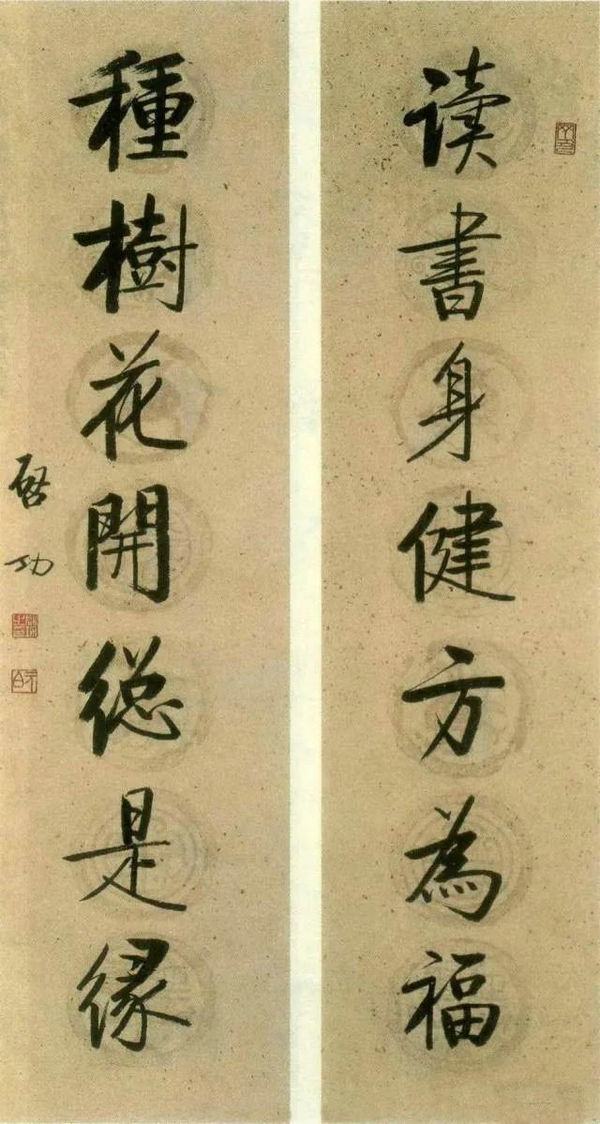 读書身健方為福
種樹花開總是緣
啓功
元白